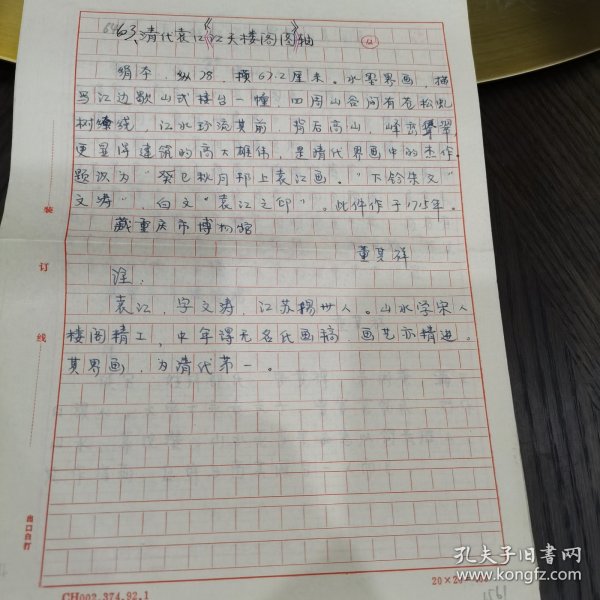 63、清代袁江《江天楼阁图》轴
绢本，纵78，横67.2厘米。水墨界画，描
写江边歇山式楼台一幢，四周山谷间有苍松虬
树缭绕，江水环流其前，背后高山，峰峦耸翠
更显得建筑的高大雄伟，是清代界画中的杰作
题识为“癸巳秋月邗上袁江画。”下钤朱文“
文涛”，白文“袁江之印”。此件作于1715年。
藏重庆市博物馆
董其祥
注：
袁江，字文涛，江苏扬州人。山水学宋人
楼阁精工，中年得无名氏画稿，画艺亦精进。
其界画，为清代第一。
装
订
线
出口自打
CH002.374.92.1
20×2
孔夫子旧书网
www.kongfz.com